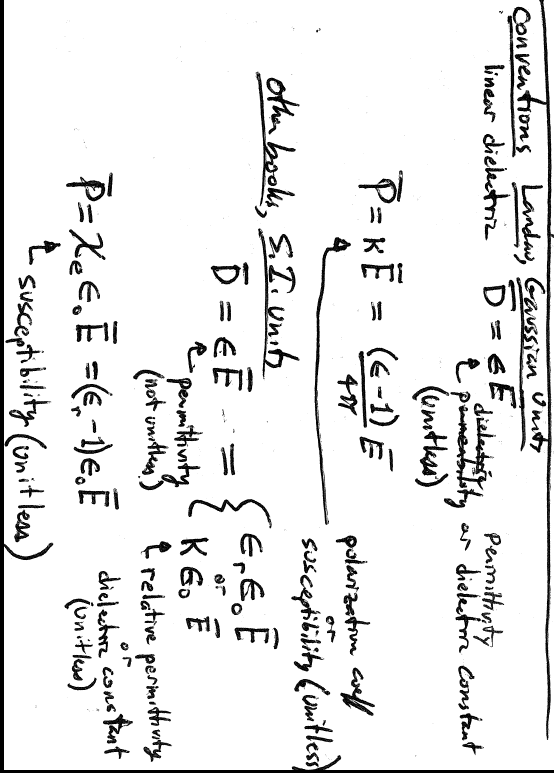 Conventions Landau, Gaussian units
linear dielectric D̄ = ϵĒ permittivity
dielectric permeability or dielectric constant
(unitless)
P̄ = κĒ = (ϵ-1)/4π Ē
polarization coeff
or
susceptibility (unitless)
Other books, S.I. units
D̄ = ϵĒ = { ϵᵣϵ₀Ē
or
Kϵ₀Ē
permittivity
(not unitless)
relative permittivity
or
dielectric constant
(unitless)
P̄ = χₑϵ₀Ē = (ϵᵣ-1)ϵ₀Ē
susceptibility (unitless)